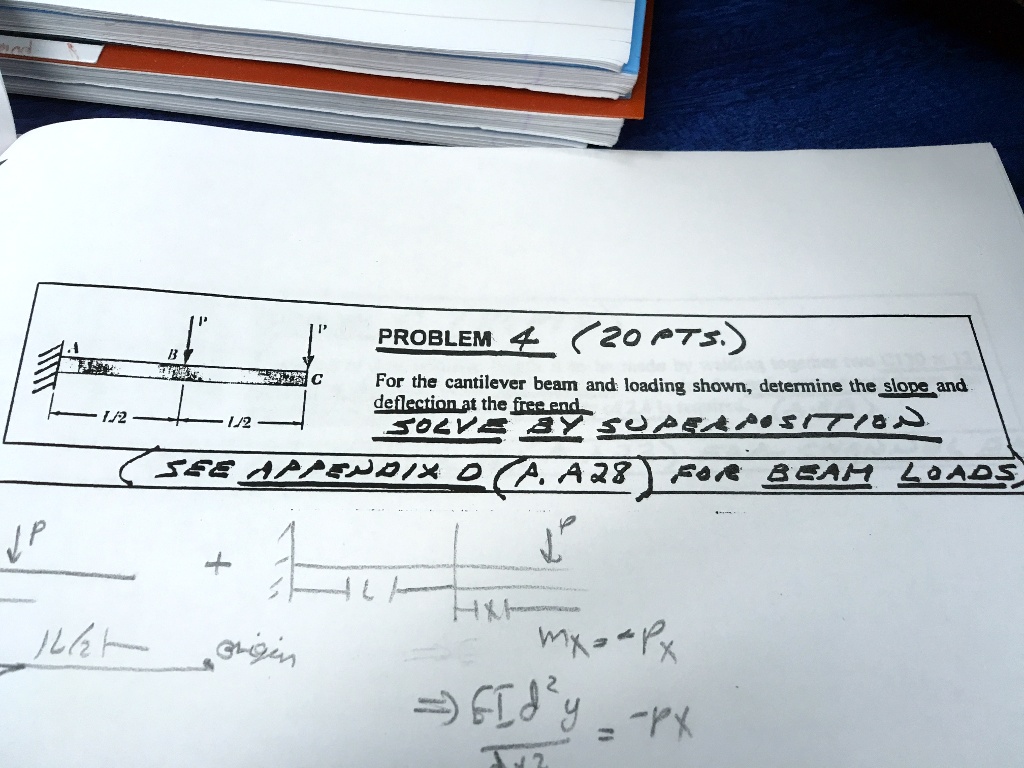 PROBLEM 4 (20 PTS.)
A B P P C
L/2 L/2
For the cantilever beam and loading shown, determine the slope and
deflection at the free end
SOLVE BY SUPERPOSITION
(SEE APPENDIX D (P. A28) FOR BEAM LOADS)
P + P
L
X
L/2 origin
Mx = -Px
⇒ EI d²y = -PX
dx²